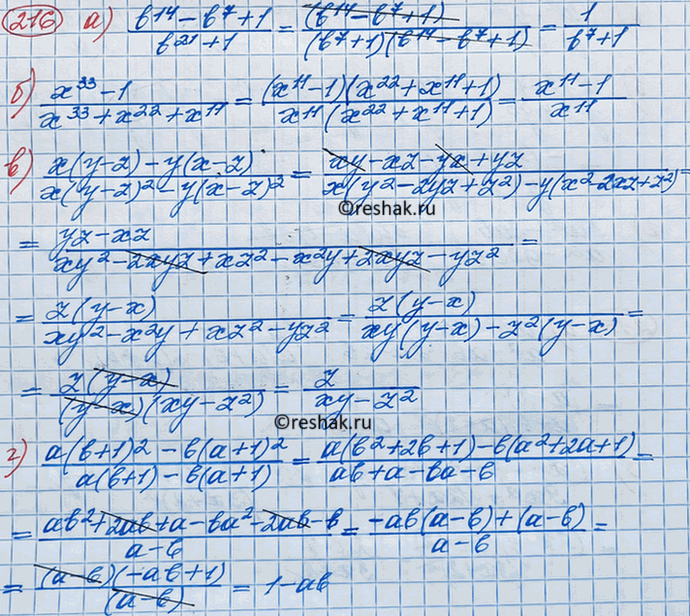 216 а) (b¹⁴ − b⁷ + 1)/(b²¹ + 1) = (b¹⁴ − b⁷ + 1)/((b⁷ + 1)(b¹⁴ − b⁷ + 1)) = 1/(b⁷ + 1)
б) (x³³ − 1)/(x³³ + x²² + x¹¹) = ((x¹¹ − 1)(x²² + x¹¹ + 1))/(x¹¹(x²² + x¹¹ + 1)) = (x¹¹ − 1)/x¹¹
в) (x(y − z) − y(x − z))/(x(y − z)² − y(x − z)²) = (xy − xz − yx + yz)/(x(y² − 2yz + z²) − y(x² − 2xz + z²)) =
©reshak.ru
= (yz − xz)/(xy² − 2xyz + xz² − x²y + 2xyz − yz²) =
= (z(y − x))/(xy² − x²y + xz² − yz²) = (z(y − x))/(xy(y − x) − z²(y − x)) =
= (z(y − x))/((y − x)(xy − z²)) = z/(xy − z²)
©reshak.ru
г) (a(b + 1)² − b(a + 1)²)/(a(b + 1) − b(a + 1)) = (a(b² + 2b + 1) − b(a² + 2a + 1))/(ab + a − ba − b) =
= (ab² + 2ab + a − ba² − 2ab − b)/(a − b) = (−ab(a − b) + (a − b))/(a − b) =
= ((a − b)(−ab + 1))/(a − b) = 1 − ab